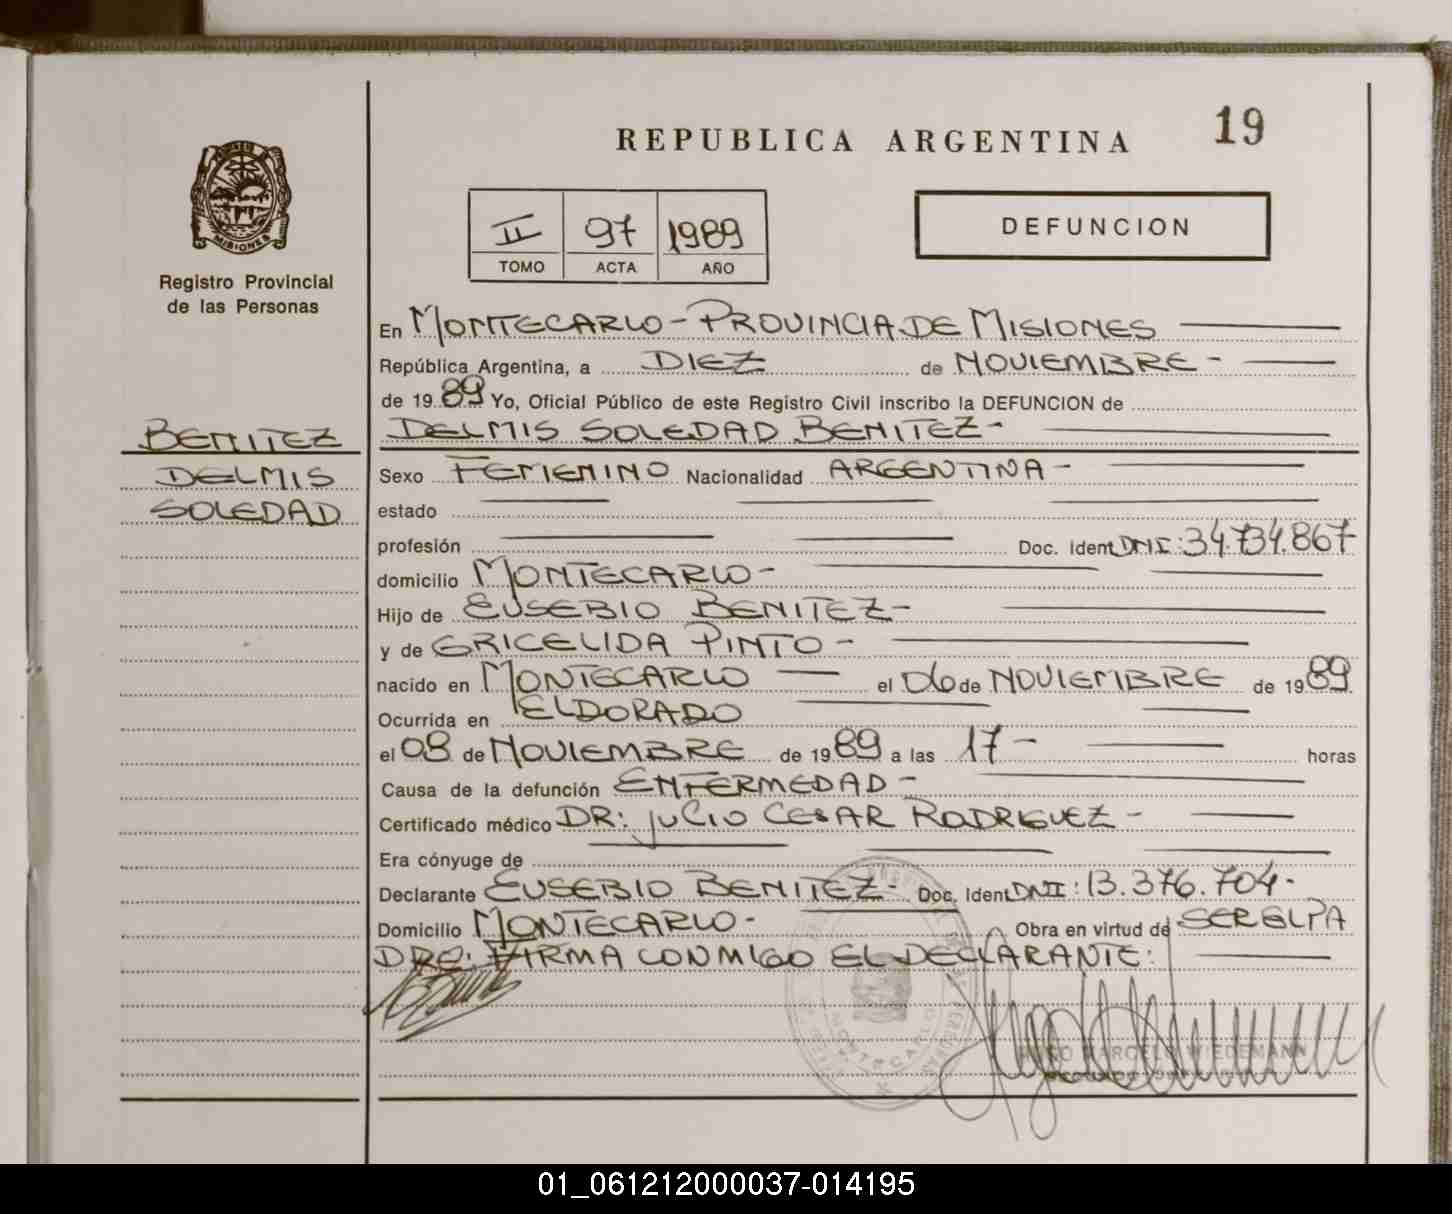 REPUBLICA ARGENTINA
19
MISIONES
Registro Provincial
de las Personas
II 97 1989
TOMO ACTA AÑO
DEFUNCION
BENITEZ
DELMIS
SOLEDAD
En MONTECARLO - PROVINCIA DE MISIONES
República Argentina, a DIEZ de NOVIEMBRE -
de 1989 Yo, Oficial Público de este Registro Civil inscribo la DEFUNCION de
DELMIS SOLEDAD BENITEZ -
Sexo FEMENINO Nacionalidad ARGENTINA -
estado
profesión Doc. Ident DNI: 34.734.867
domicilio MONTECARLO -
Hijo de EUSEBIO BENITEZ -
y de GRICELIDA PINTO -
nacido en MONTECARLO el 06 de NOVIEMBRE de 1989
Ocurrida en ELDORADO
el 08 de NOVIEMBRE de 1989 a las 17 - horas
Causa de la defunción ENFERMEDAD -
Certificado médico DR: JULIO CESAR RODRIGUEZ -
Era cónyuge de
Declarante EUSEBIO BENITEZ - Doc. Ident DNI: 13.376.704.
Domicilio MONTECARLO - Obra en virtud de SER EL PA
DRE: FIRMA CONMIGO EL DECLARANTE:
MONTECARLO
HUGO MARCELO WIEDEMANN
01_061212000037-014195